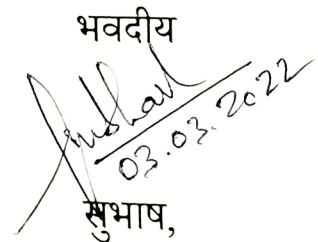 भवदीय
03.03.2022
सुभाष,